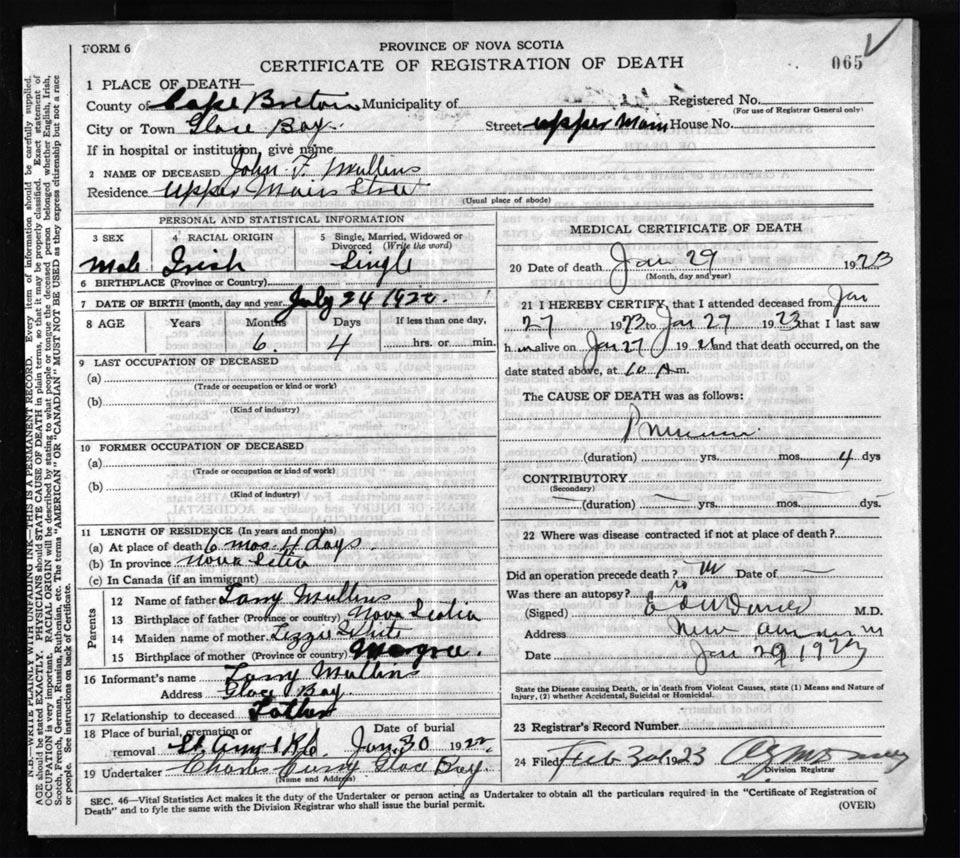 FORM 6
PROVINCE OF NOVA SCOTIA
CERTIFICATE OF REGISTRATION OF DEATH
065
1 PLACE OF DEATH—
County of Cape Breton Municipality of Registered No.
(For use of Registrar General only)
City or Town Glace Bay Street upper Main House No.
If in hospital or institution, give name
2 NAME OF DECEASED John F. Mullins
Residence upper Main Street
(Usual place of abode)
PERSONAL AND STATISTICAL INFORMATION
3 SEX 4 RACIAL ORIGIN 5 Single, Married, Widowed or Divorced (Write the word)
Male Irish Single
6 BIRTHPLACE (Province or Country)
7 DATE OF BIRTH (month, day and year) July 24 1922
8 AGE Years Months Days If less than one day,
6 4 hrs. or min.
9 LAST OCCUPATION OF DECEASED
(a)
(Trade or occupation or kind or work)
(b)
(Kind of industry)
10 FORMER OCCUPATION OF DECEASED
(a)
(Trade or occupation or kind of work)
(b)
(Kind of industry)
11 LENGTH OF RESIDENCE (In years and months)
(a) At place of death 6 mos. 4 days
(b) In province Nova Scotia
(c) In Canada (if an immigrant)
Parents
12 Name of father Larry Mullins
13 Birthplace of father (Province or country) Nova Scotia
14 Maiden name of mother Lizzie White
15 Birthplace of mother (Province or country)
16 Informant's name Larry Mullins
Address Glace Bay
17 Relationship to deceased Father
18 Place of burial, cremation or removal Date of burial
St Ann's Jan 30 1922
19 Undertaker Charles Curry Glace Bay
(Name and Address)
MEDICAL CERTIFICATE OF DEATH
20 Date of death Jan 29 1923
(Month, day and year)
21 I HEREBY CERTIFY, that I attended deceased from Jan
27 1923 to Jan 29 1923 that I last saw
h m alive on Jan 27 19 and that death occurred, on the
date stated above, at 10 A m.
The CAUSE OF DEATH was as follows:
(duration) yrs. mos. 4 dys
CONTRIBUTORY
(Secondary)
(duration) yrs. mos. dys.
22 Where was disease contracted if not at place of death?
Did an operation precede death? Date of
Was there an autopsy? no
(Signed) M.D.
Address New
Date Jan 29 1923
State the Disease causing Death, or in death from Violent Causes, state (1) Means and Nature of
Injury, (2) whether Accidental, Suicidal or Homicidal.
23 Registrar's Record Number
24 Filed Feb 3rd 1923
Division Registrar
SEC. 46—Vital Statistics Act makes it the duty of the Undertaker or person acting as Undertaker to obtain all the particulars required in the "Certificate of Registration of
Death" and to fyle the same with the Division Registrar who shall issue the burial permit.
(OVER)
N.B. WRITE PLAINLY WITH UNFADING INK—THIS IS A PERMANENT RECORD. Every item of information should be carefully supplied.
AGE should be stated EXACTLY. PHYSICIANS should STATE CAUSE OF DEATH in plain terms, so that it may be properly classified. Exact statement of
OCCUPATION is very important. RACIAL ORIGIN will be described by stating to what people or tongue the deceased person belonged whether English, Irish,
Scotch, French, German, Russian, Ruthenian, etc. The terms "AMERICAN" OR "CANADIAN" MUST NOT BE USED as they express citizenship but not a race
or people. See instructions on back of Certificate.